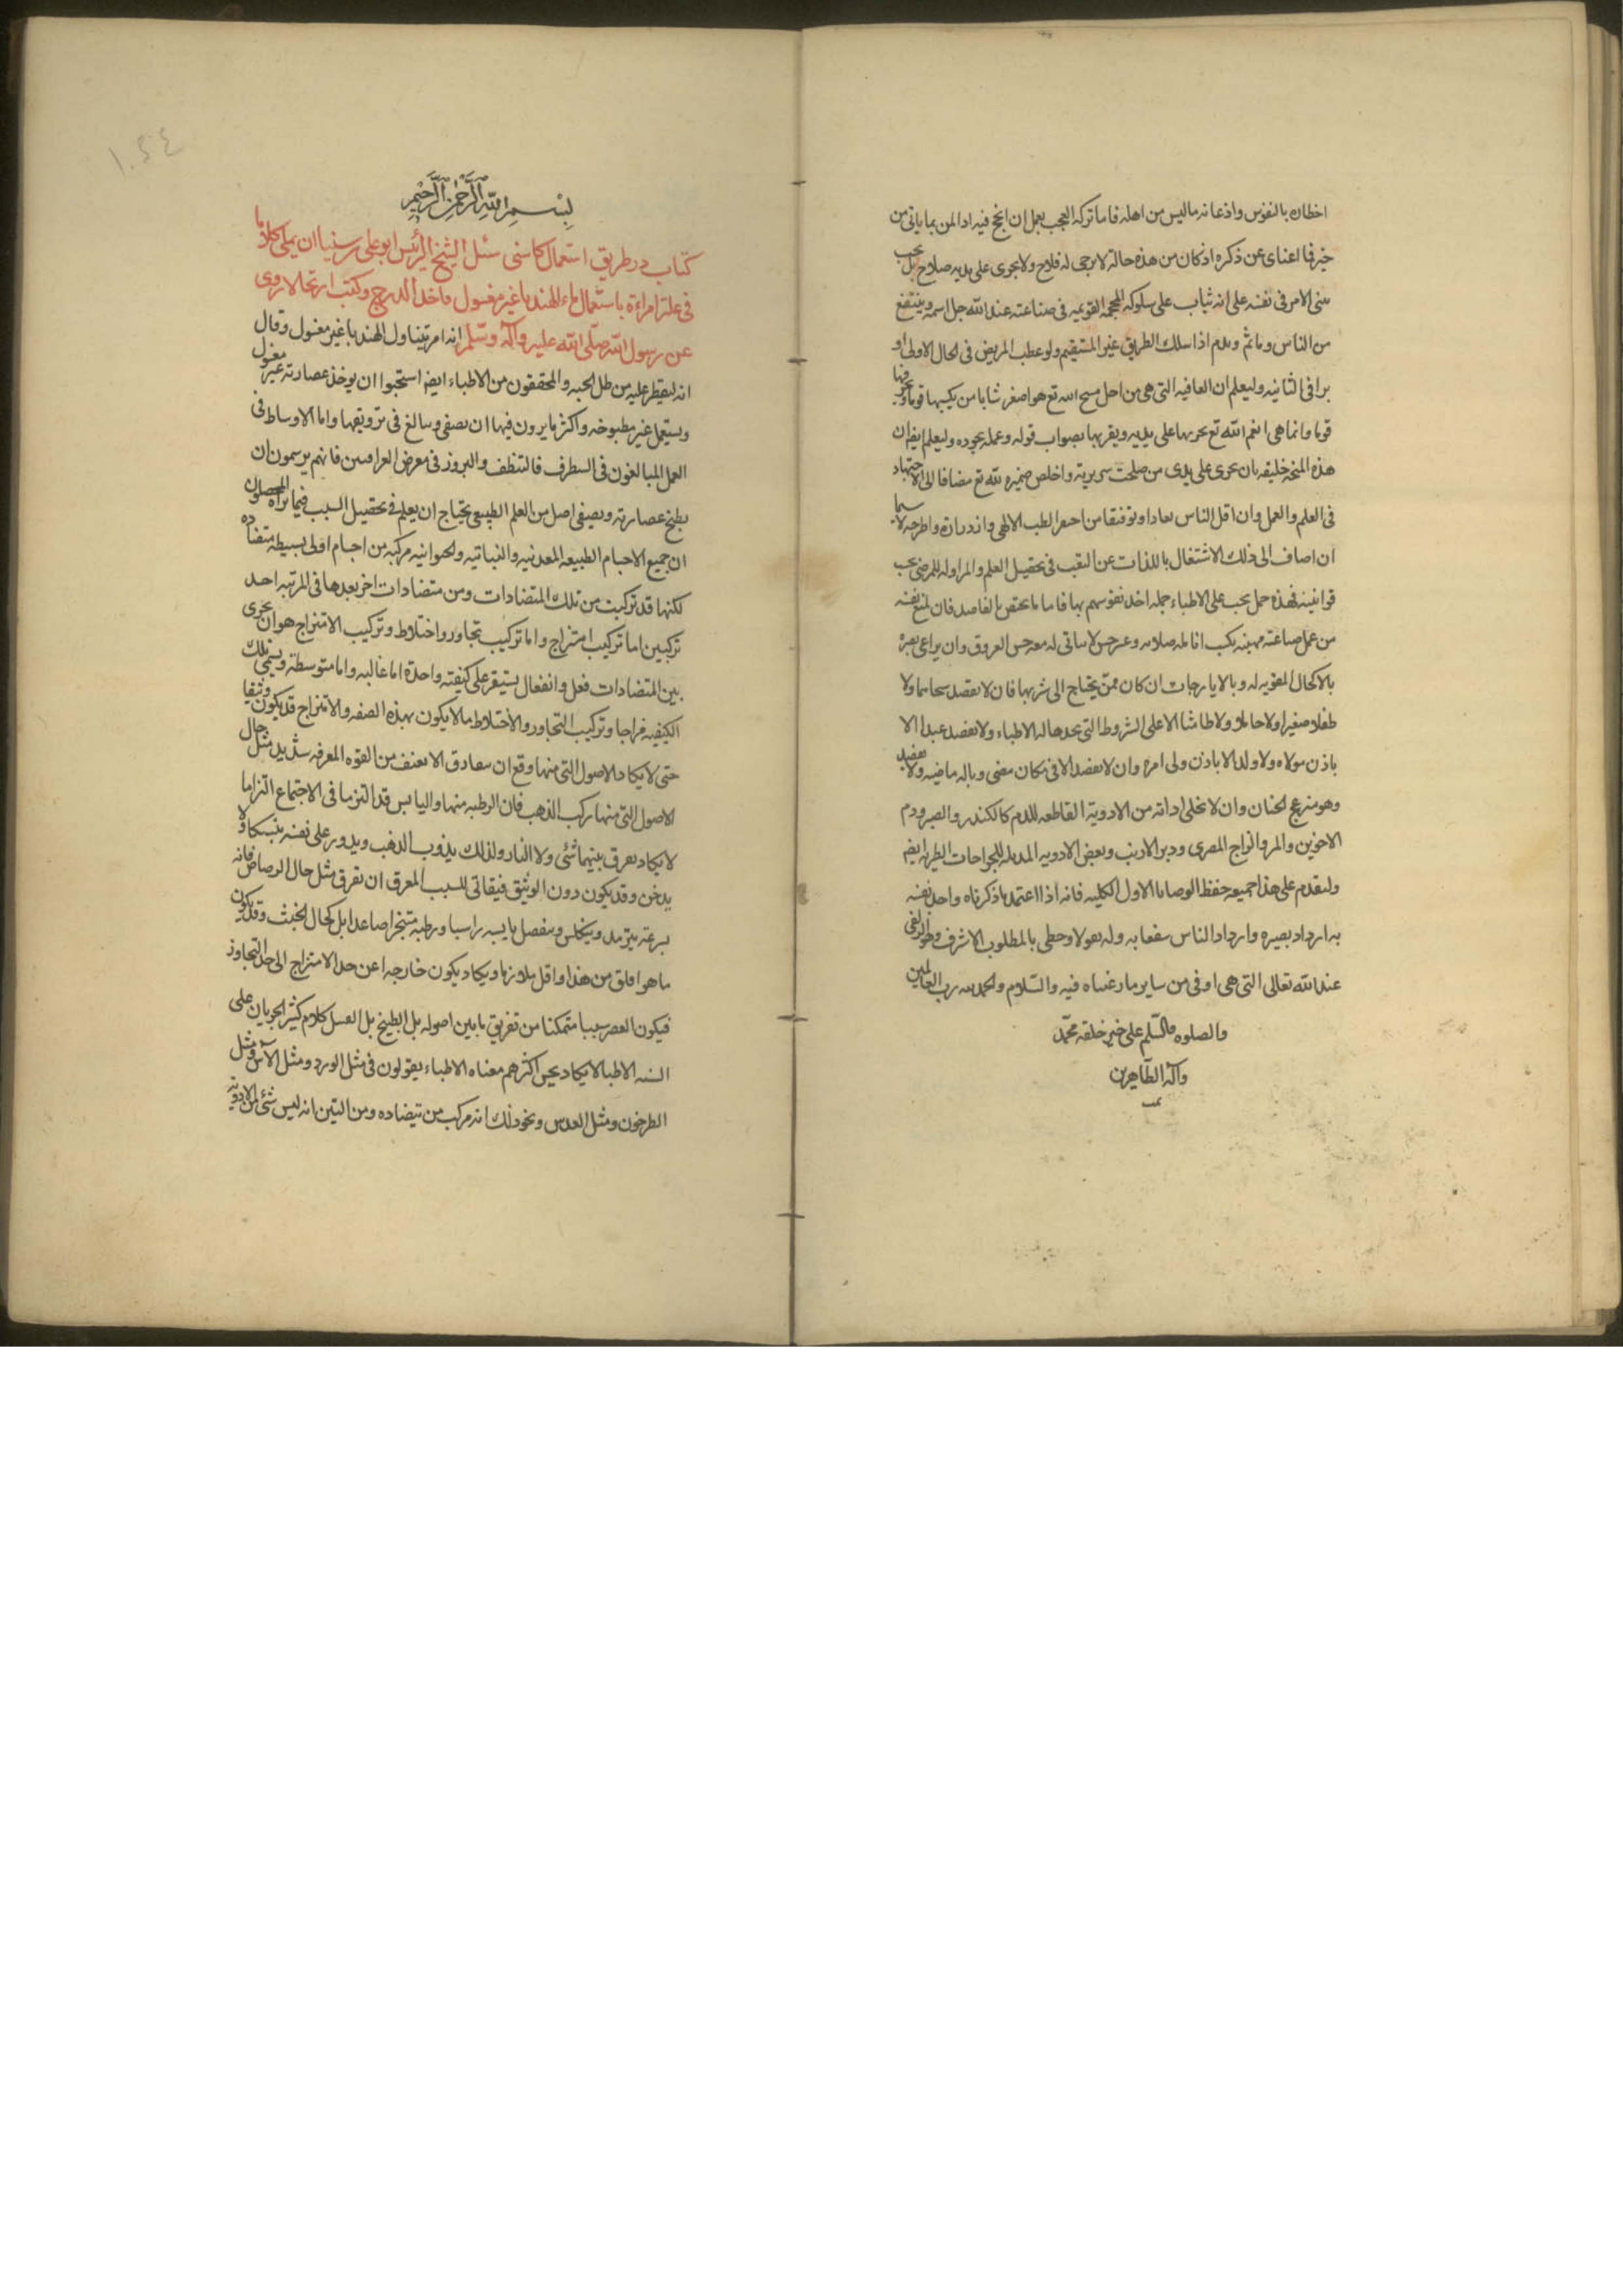 اخطاره بالنفوس واذعانه ماليس من اهله فاما تركه العجب بعمل ان انجح فيه اذا لمن بما ياتى من
خير فما اغناى عن ذكره اذ كان من هذه حالته لا يرجى له فلاح ولا يجرى على يديه صلاح بل يجب
الامر فى نفسه على انه ثياب على سلوكه المحجة القويمه فى صناعته عند الله جل اسمه وينتفع
من الناس وياثم ويذم اذا سلك الطريق غير المستقيم ولو عطب المريض فى الحال الاولى او
برا فى الثانيه وليعلم ان العافيه التى هى من اجل منح الله تع هو اصغر شانا من يكسبها قوما و
قوما وانما هى انعم الله تع يجريها على يديه ويقربها بصواب قوله وعمله بجوده وليعلم ايضا ان
هذه المنحه خليقه بان تجرى على يدى من صلحت سريريته واخلص ضميره لله تع مضافا الى الاجتهاد
فى العلم والعمل وان اقل الناس توفيقا من احتقر الطب الالهى وازدراه واطرحه لا سيما
ان اضاف الى ذلك الاشتغال باللذات عن التعب فى تحصيل العلم والمزاوله للمرضى بحسب
قوانينه فهذه جمل يجب على الاطباء جمله اخذ نفوسهم بها فاما ما يختص بالفاصد فان يمنع نفسه
من عمل صناعته مهينه تكسب انامله صلابه وعسر حس لا يتاتى له معه حس العروق وان يراعى بصره
بالاكحال المقويه له وبالايارجات ان كان ممن يحتاج الى شربها فان لا يفصد شيخا ولا
طفلا صغيرا ولا حاملا ولا طامثا الا على الشروط التى يحدها له الاطباء ولا يفصد عبدا الا
باذن مولاه ولا ولدا الا باذن ولى امره وان لا يفصد الا فى مكان مضى وباله ماضيه ولا يفصد
وهو منزعج الجنان وان لا تخلى اداته من الادوية القاطعه للدم كالكندر والصبر ودم
الاخوين والمر والزاج المصرى ووبر الارنب وبعض الادويه المدمله للجراحات الطريه ايضا
وليقدم على هذا جميعه حفظ الوصايا الاول الكليه فانه اذا اعتمد ما ذكرناه واخذ نفسه
به ازداد بصيره وازداد الناس نفعا به وله قبولا وحظى بالمطلوب الاشرف وهو الزلفى
عند الله تعالى التى هى اوفى من ساير ما رغبناه فيه والسلام والحمد لله رب العالمين
والصلوه والسلم على خير خلقه محمد
وآله الطاهرين
تمت
١٠٥٤
بسم الله الرحمن الرحيم
كتاب در طريق استعمال كاسنى سئل الشيخ الرئيس ابو على سينا ان يملى كلاما
فى علة امراءة باستعمال ماء الهندبا غير مغسول فاخذ الدرج وكتب ارتجالا روى
عن رسول الله صلى الله عليه وآله وسلم انه امر بتناول الهندبا غير مغسول وقال
انه ليقطر عليه من طل الجنه والمحققون من الاطباء ايضا استحبوا ان يوخذ عصارته غير مغسول
ويستعمل غير مطبوخه واكثر ما يرون فيها ان يصفى ويبالغ فى ترويقها واما الاوساط فى
العمل المبالغون فى التطرف فالتنظف والبروز فى معرض العرافين فانهم يرسمون ان
يطبخ عصارته ويصفى اصل من العلم الطبيعى يحتاج ان يعلم فى تحقيق السبب فيما يراه المحصلون
ان جميع الاجسام الطبيعه المعدنيه والنباتيه والحوانيه مركبه من اجسام اولى بسيطه متضاده
لكنها قد تركبت من تلك المتضادات ومن متضادات اخر بعدها فى المرتبه احد
تركيبين اما تركيب امتزاج واما تركيب تجاور واختلاط وتركيب الامتزاج هو ان يجرى
بين المتضادات فعل وانفعال يستقر على كيفيته واحدة اما غالبه واما متوسطة ويسمى تلك
الكيفيه مزاجا وتركيب التجاور والاختلاط ما لا يكون بهذه الصفه والامتزاج قد يكون وثيقا
حتى لا يكاد الاصول التى منها وقع ان تفارق الا بعنف من القوه المفرقه شديد مثل حال
الاصول التى منها ركب الذهب فان الرطبه منها واليابس قد التزما فى الاجتماع التزاما
لا يكاد يفرق بينهما شئ ولا النار ولذلك يذوب الذهب ويدور على نفسه منسبكا ولا
يدخن وقد يكون دون الوثيق فيتاتى للسبب المفرق ان تفرق مثل حال الرصاص فانه
بسرعته يترمد ويتكلس وينفصل يابسه راسبا ورطبه متبخرا صاعدا بل كحال الخبث وقد يكون
ما هو اقلق من هذا واقل تلازما ويكاد يكون خارجه اعن حد الامتزاج الى حد التجاور
فيكون العصر سببا متمكنا من تفريق ما بين اصوله بل الطبخ بل الغسل كلام كثير الجريان على
السنه الاطبا لا يكاد يحس اكثرهم معناه الاطباء يقولون فى مثل الورد ومثل الآس ومثل
الطرخون ومثل العدس ونحو ذلك انه مركب من متضاده ومن البين انه ليس شئ من الادوية